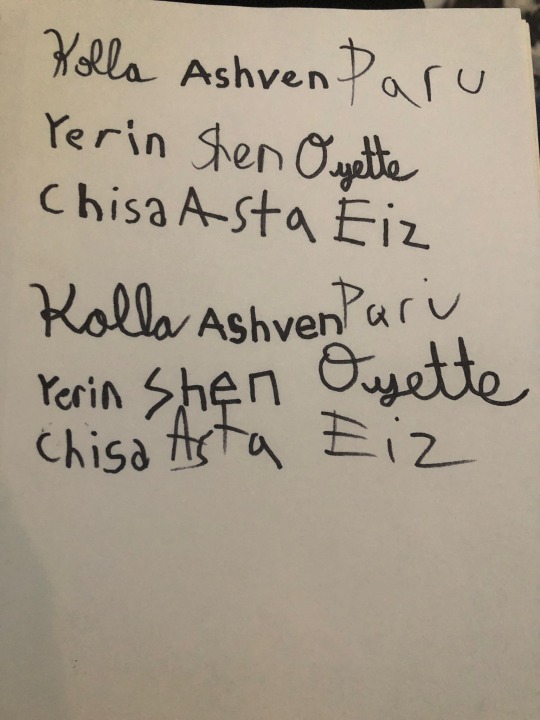 Kolla Ashven Paru
Yerin Shen Oyette
Chisa Asta Eiz
Kolla Ashven Paru
Yerin Shen Oyette
Chisa Asta Eiz